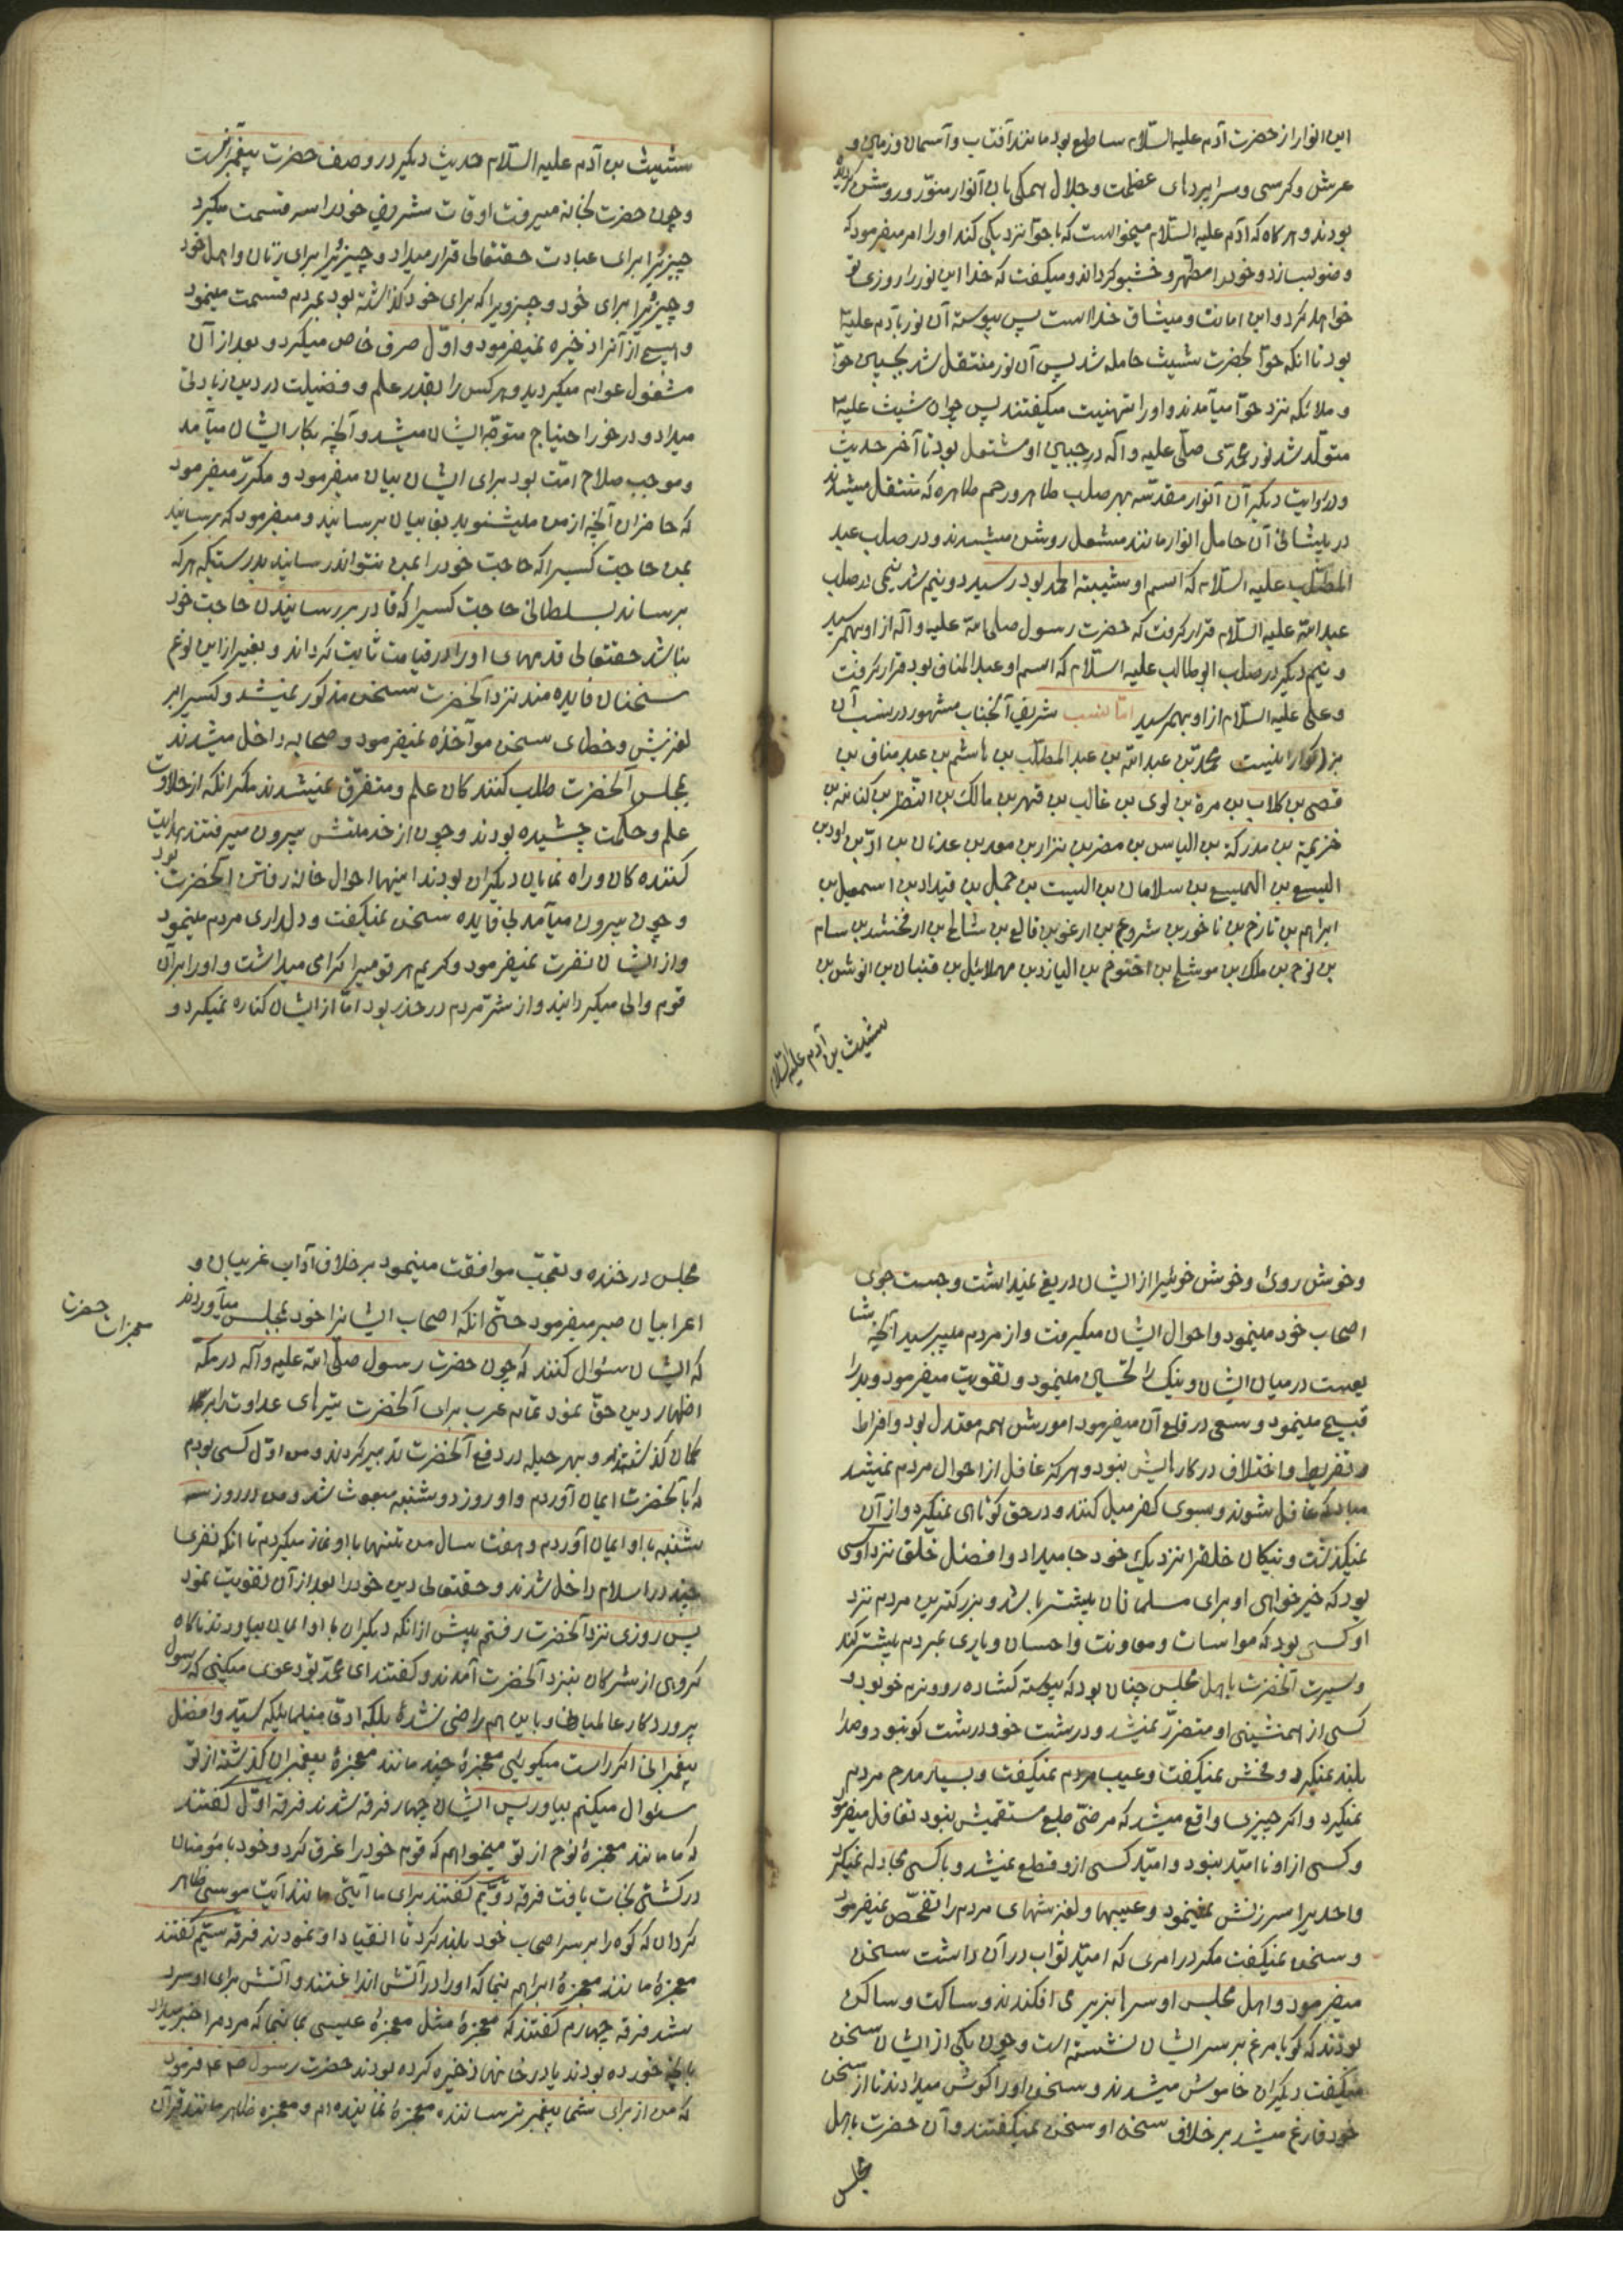 این انوار از حضرت آدم علیه السّلام ساطع بود مانند آفتاب و آسمان و زمین و
عرش و کرسی و سراپردهای عظمت و جلال همکی بان انوار منوّر و روشن کردید
بودند و هر کاه که آدم علیه السّلام میخواست که با حوّا نزدیکی کند او را امر میفرمود که
وضو بسازد و خود را مطهّر و خشبو کرداند و میکفت که خدا این نور را روزی تو
خواهد کرد و این امانت و میثاق خداست پس پیوسته آن نور با آدم علیه
بود تا انکه حوّا بحضرت شیث حامله شد پس آن نور منتقل شد بجبین حوّا
و ملائکه نزد حوّا میآمدند و او را تهنیت میکفتند پس چون شیث علیه
متولّد شد نور محمّدی صلّی علیه و آله در جبین او مشتعل بود تا آخر حدیث
و در روایت دیکر آن انوار مقدّسه بهر صلب طاهر و رحم طاهره که منتقل میشدند
در پیشانی آن حامل انوار مانند مشعل روشن میشدند و در صلب عبد
المطّلب علیه السّلام که اسم او شیبة الحمد بود رسید دو نیم شد نیمی در صلب
عبد الله علیه السّلام قرار کرفت که حضرت رسول صلی الله علیه و آله از او بهم رسید
و نیم دیکر در صلب ابو طالب علیه السّلام که اسم او عبد المناف بود قرار کرفت
و علی علیه السّلام از او بهم رسید امّا نسب شریف آنجناب مشهور در نسب آن
بزرکوار اینست محمّد بن عبد الله بن عبد المطّلب بن هاشم بن عبد مناف بن
قصی بن کلاب بن مرة بن لوی بن غالب بن فهر بن مالک بن النضر بن کنانه بن
خزیمة بن مدرکة بن الیاس بن مضر بن نزار بن معد بن عدنان بن ادّ بن اود بن
الیسع بن الهمیسع بن سلامان بن البیت بن حمل بن قیدار بن اسمعیل بن
ابراهیم بن تارخ بن ناخور بن شروع بن ارغو بن فالع بن شالح بن ارفخشد بن سام
بن نوح بن ملک بن موشلح بن اخنوخ بن الیازد بن مهلائیل بن قنبان بن انوش بن
شیث بن آدم علیه السّلام
شیث بن آدم علیه السّلام حدیث دیکر در وصف حضرت پیغمبر است
و چون حضرت بخانه میرفت اوقات شریف خود را سه قسمت میکرد
چیزیرا برای عبادت حقتعالی قرار میداد و چیزیرا برای زنان و اهل خود
و چیزیرا برای خود و چیزیرا که برای خود کذاشته بود بمردم قسمت مینمود
و هیچ از آنرا ذخیره نمیفرمود و اوّل صرف خاص میکرد و بعد از آن
مشغول عوام میکردید و هر کس را بقدر علم و فضیلت در دین زیادتی
میداد و در خور احتیاج متوجّه ایشان میشد و آنچه بکار ایشان میآمد
و موجب صلاح امّت بود برای ایشان بیان میفرمود و مکرّر میفرمود
که حاضران آنچه از من میشنوید بغایبان برسانید و میفرمود که برسانید
بمن حاجت کسیرا که حاجت خود را بمن نتواند رسانید بدرستیکه هر که
برساند بسلطانی حاجت کسیرا که قادر بر رسانیدن حاجت خود
نباشد حقتعالی قدمهای او را در قیامت ثابت کرداند و بغیر از این نوع
سخنان فایده مند نزد آنحضرت سخن مذکور نمیشد و کسیرا بر
لغزش و خطای سخن مواخذه نمیفرمود و صحابه داخل میشدند
بمجلس آنحضرت طلب کنندکان علم و متفرّق نمیشدند مکر انکه از حلاوت
علم و حکمت چشیده بودند و چون از خدمتش بیرون میرفتند هدایت
کننده کان و راه نمایان دیکران بودند اینها احوال خانه رفتن آنحضرت بود
و چون بیرون میآمد بی فایده سخن نمیکفت و دلداری مردم مینمود
و از ایشان نفرت نمیفرمود و کریم هر قومیرا کرامی میداشت و او را بر آن
قوم والی میکردانید و از شرّ مردم در حذر بود امّا از ایشان کناره نمیکرد و
و خوش روئی و خوش خوئیرا از ایشان دریغ نمیداشت و جست جوی
اصحاب خود مینمود و احوال ایشان میکرفت و از مردم میپرسید آنچه
در میان ایشان و نیک را تحسین مینمود و تقویت میفرمود و بد را
قبیح مینمود و سعی در قلع آن میفرمود امورش همه معتدل بود و افراط
و تفریط و اختلاف در کارهایش نبود و هرکز غافل از احوال مردم نمیشد
مبادا که غافل شوند و بسوی کفر میل کنند و در حق کوتاهی نمیکرد و از آن
نمیکذشت و نیکان خلقرا نزدیک خود جا میداد و افضل خلق نزد او کسی
بود که خیرخواهی او برای مسلمانان بیشتر باشد و بزرکترین مردم نزد
او کسی بود که مواسات و معاونت و احسان و یاری بمردم بیشتر کند
و سیرت آنحضرت با اهل مجلس چنان بود که پیوسته کشاده رو و نرم خو بود و
کسی از همنشینی او متضرّر نمیشد و درشت خو و درشت کو نبود و صدا
بلند نمیکرد و فحش نمیکفت و عیب مردم نمیکفت و بسیار مدح مردم
نمیکرد و اکر چیزی واقع میشد که مرضیّ طبع مستقیمش نبود تغافل میفرمود
و کسی از او نا امید نبود و امیّد کسی از و قطع نمیشد و با کسی مجادله نمیکرد
و احدیرا سرزنش نمینمود و عیبها و لغزشهای مردم را تفحّص نمیفرمود
و سخن نمیکفت مکر در امری که امیّد ثواب در آن داشت سخن
میفرمود و اهل مجلس او سرها بزیر می افکندند و ساکت و ساکن
بودند که کویا مرغ بر سر ایشان نشسته است و چون یکی از ایشان سخن
میکفت دیکران خاموش میشدند و سخن او را کوش میدادند تا از سخن
خود فارغ میشد بر خلاف سخن او سخن نمیکفتند و آن حضرت با اهل
مجلس
مجلس در خنده و تعجّب موافقت مینمود بر خلاف آداب غریبان و
اعرابیان صبر میفرمود حتّی انکه اصحاب ایشانرا خود بمجلس میآوردند
معجزات حضرت
که ایشان سئوال کنند که چون حضرت رسول صلّی الله علیه و آله در مکّه
اظهار دین حقّ نمود تمام عرب برای آنحضرت تیرهای عداوت را بر
کمان کذاشتند و بهر حیله در دفع آنحضرت تدبیر کردند و من اوّل کسی بودم
که بآنحضرت ایمان آوردم و او روز دوشنبه مبعوث شد و من در روز سه
شنبه باو ایمان آوردم و هفت سال من تنها با او نماز میکردم تا انکه نفری
چند در اسلام داخل شدند و حقتعالی دین خود را بعد از آن تقویت نمود
پس روزی نزد آنحضرت رفتم پیش از انکه دیکران باو ایمان بیاورند ناکاه
کروهی از مشرکان بنزد آنحضرت آمدند و کفتند ای محمّد تو دعوی میکنی که رسول
پروردکار عالمیانی و باین هم راضی نشدهٔ بلکه ادّعا مینمائی که سیّد و افضل
پیغمبرانی اکر راست میکویی معجزهٔ چند مانند معجزهٔ پیغمبران کذشته از تو
سئوال میکنم بیاور پس ایشان چهار فرقه شدند فرقه اوّل کفتند
که ما مانند معجزهٔ نوح از تو میخواهیم که قوم خود را غرق کرد و خود با مؤمنان
در کشتی نجات یافت فرقه دوّیم کفتند برای ما آیتی مانند آیت موسی ظاهر
کردان که کوه را بر سر اصحاب خود بلند کرد تا انقیاد او نمودند فرقه سیّم کفتند
معجزهٔ مانند معجزهٔ ابراهیم بنما که او را در آتش انداختند و آتش برای او سرد
شد فرقه چهارم کفتند که معجزهٔ مثل معجزهٔ عیسی بما بنما که مردمرا خبر میداد
بآنچه خورده بودند یا در خانها ذخیره کرده بودند حضرت رسول ص فرمود
که من از برای شما پیغمبر ترساننده معجزهٔ نماینده ام و معجزه ظاهر مانند قرآن